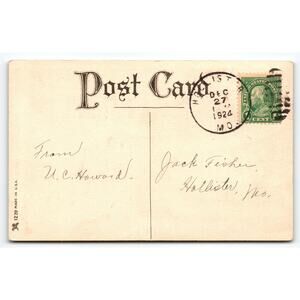 Post Card
HOLLISTER
DEC
27
1924
MO.
CENT
From
U.C. Howard.
Jack Fisher,
Hollister, Mo.
1239 MADE IN U.S.A.